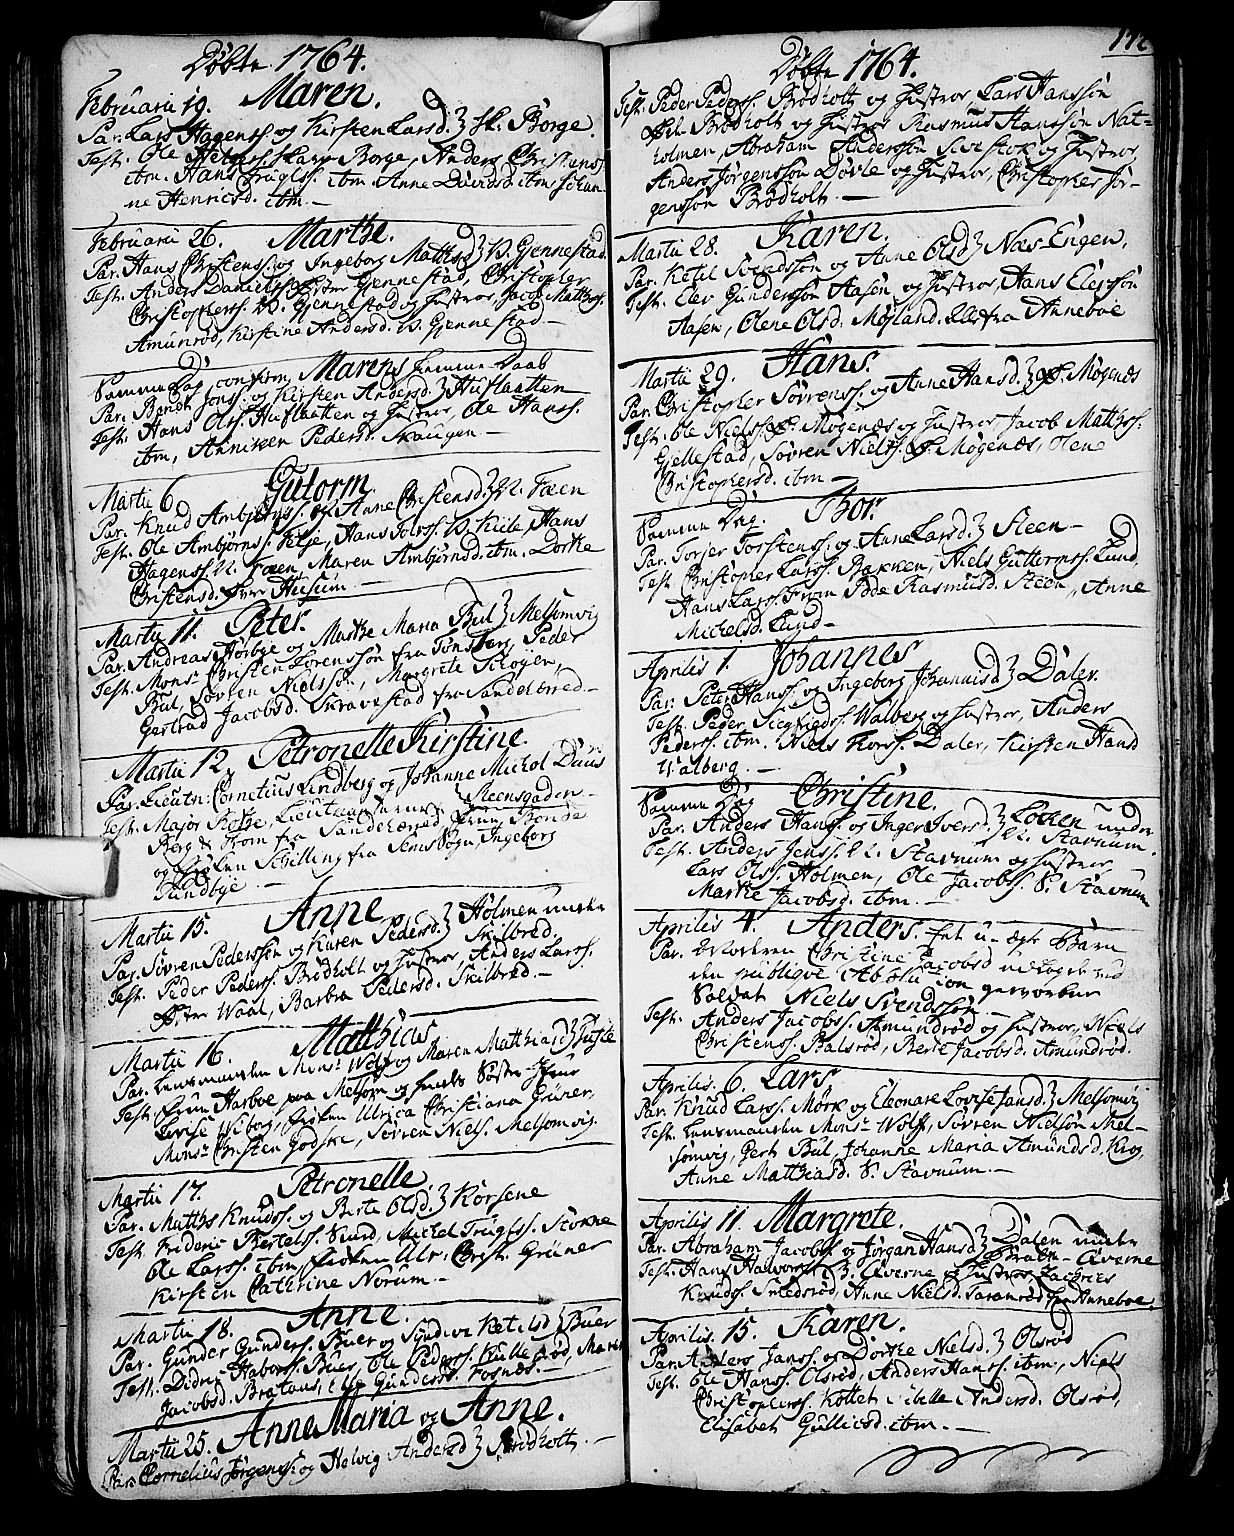 Døbte 1764.
Februarii 19. Maren.
Par. Lars Hagenss. og Kirsten Larsd. Borge.
Test. Ole Borge, Anders Christenss.
ibm. Hans Truglss. ibm. Anne Davidsd. ibm. Johan-
ne Henricsd. ibm. —
Februarii 26. Marthe.
Par. Hans Christenss. og Ingeborg Matthsd. V. Gjennestad.
Test. Anders Danielss. Gjennestad, Christopher
Christopherss. V. Gjennestad og Hustroe, Jacob Matthss.
Amunrød, Kirstine Andersd. V. Gjennestad —
Samme Dag, confirm. Marens hiemme Daab
Par. Bendt Jonss. og Kirsten Andersd. Huflaatten
Test. Hans Olss. Huflaatten og Hustroe, Ole Hanss.
ibm, Anniken Pedersd. Skaugen —
Martii 6. Gutorm
Par. Knud Ambjørnss. og Anne Christensd. N. Fæen
Test. Ole Ambjørnss. Felje, Hans Torss. V. Kiile, Hans
Hagenss. N. Fæen, Maren Ambjørnsd. ibm. Dorthe
Christensd. Husum
Martii 11. Peter.
Par. Andreas Hørbye og Marthe Maria Bul Melsomvig
Test. Monsr. Christen Lorenssøn fra Tønsberg, Peder
Bul, Søren Nielssøn, Margrete Schøyer,
Gertrud Jacobsd. Skravestad fra Sandehærred —
Martii 12. Petronelle Kirstine.
Par. Lieutn: Cornelius Lindberg og Johanne Michol Duus
Steensgaden —
Test. Major Rothe, Lieutnanterne
Berg & Thorn fra Sandehærred, Bonde
og Frøken Schilling fra Sems Sogn, Ingeborg
Sundbye. —
Martii 15. Anne
Par. Søvren Pederssøn og Karen Pedersd. Holmen under
Skilbred.
Test. Peder Pederss. Brødholt og Hustroe, Anders Larss.
Waal, Barbra Pedersd. Skilbred. —
Martii 16. Matthias
Par. Lensmanden Monsr. Wolf og Maren Matthiasd. Fuste
Test. Harboe paa Melsom og hendes Søster Jfrue
Lovise Wiborg, Frøken Ulrica Christiana Grüner,
Monsr. Christen Godske, Søvren Niels. Melsomvig.
Martii 17. Petronelle.
Par. Matths Knudss. og Berte Olsd. Korsene
Test. Frideric Bertelss. Sund, Michel Truglss. Stokke
Ole Larss. ibm, Frøken Ulr. Christ. Grüner
Kirsten Cathrine Norum. —
Martii 18. Anne.
Par. Gunder Gunderss. Buer og Synneve Ketilsd. Buer
Test. Didric Haborss. Buer, Ole Pederss. Kullerød, Maren
Jacobsd. Brataas, Gundersd. Fosnæs. —
Martii 25. Anne Maria og Anne.
Par. Cornelius Jørgenss. og Helvig Andersd. Brødholt. —
Døbte 1764.
Test. Peder Pederss. Brødholt og Hustroe Lars Hanssøn
Brødholt og Hustroe Rasmus Hanssøn Nat-
holmen, Abraham Anderssøn og Hustroe
Anders Jørgenssøn Døvle og Hustroe, Christopher Jør-
genssøn Brødholt —
Martii 28. Karen.
Par. Ketil Svendssøn og Anne Olsd. Næs Engen,
Test. Elev Gunderssøn Aasen og Hustroe, Hans Elefssøn
Aasen, Olene Olsd. Møjland. fra Anneboe
Martii 29. Hans.
Par. Christopher Søvrenss. og Anne Hansd. Møgenæs
Test. Ole Nielss. Møgenæs og Hustroe Jacob Matthss.
Gjellestad, Søvren Nielss. Møgenæs, Olene
Christophersd. ibm —
Samme Dag. Thor.
Par. Torjer Torstenss. og Anne Larsd. Steen —
Test. Christopher Larss. Bakken, Niels Guttormss. Lund,
Hans Larss. From Rasmusd. Steen, Anne
Michelsd. Lund —
Aprilis 1. Johannes
Par. Peter Hanss. og Ingeborg Johannisd. Daler.
Test. Peder Siegfriedss. Walberg og Hustroe, Anders
Pederss. ibm. Niels Thorss. Daler, Kirsten Hansd.
Walberg. —
Samme Dag Christine.
Par. Anders Hanss. og Inger Iversd. Løkken under
N. Stavnum.
Test. Anders Jenss. N. Stavnum og Hustroe
Lars Olss. Holmen, Ole Jacobss. S. Stavnum
Marthe Jacobsd. ibm. —
Aprilis 4. Anders. Et u-ægte Barn
Par. Moderen Christine Jacobsd. udlagde ved
den publique Absolution gevorben
Soldat Niels Svendssøn —
Test. Anders Jacobss. Amundrød og Hustroe, Niels
Christenss. Balsrød, Berte Jacobsd. Amundrød.
Aprilis. 6. Lars
Par. Knud Larss. Mørk og Eleonare Lovise Jansd. Melsomvig
Test. Lensmanden Monsr. Wolf, Søvren Nielsøn Mel-
somvig, Gert Bul, Johanne Maria Amundsd. Krog,
Anne Matthiasd. S. Stavnum. —
Aprilis 11. Margrete.
Par. Abraham Jacobss. og Jørgan Hansd. Dalen under
Averne
Test. Hans Halvorss. Averne og Hustroe, Zachries
Knudss. Smidsrød, Anne Nielsd. fra Anneboe.
Aprilis. 15. Karen.
Par. Anders Janss. og Dorthe Nielsd. Olsrød
Test. Ole Hanss. Olsrød, Anders Hanss. ibm, Niels
Christopherss. Kottet Sibelle Andersd. Olsrød,
Elisabet Gulliesd. ibm. —